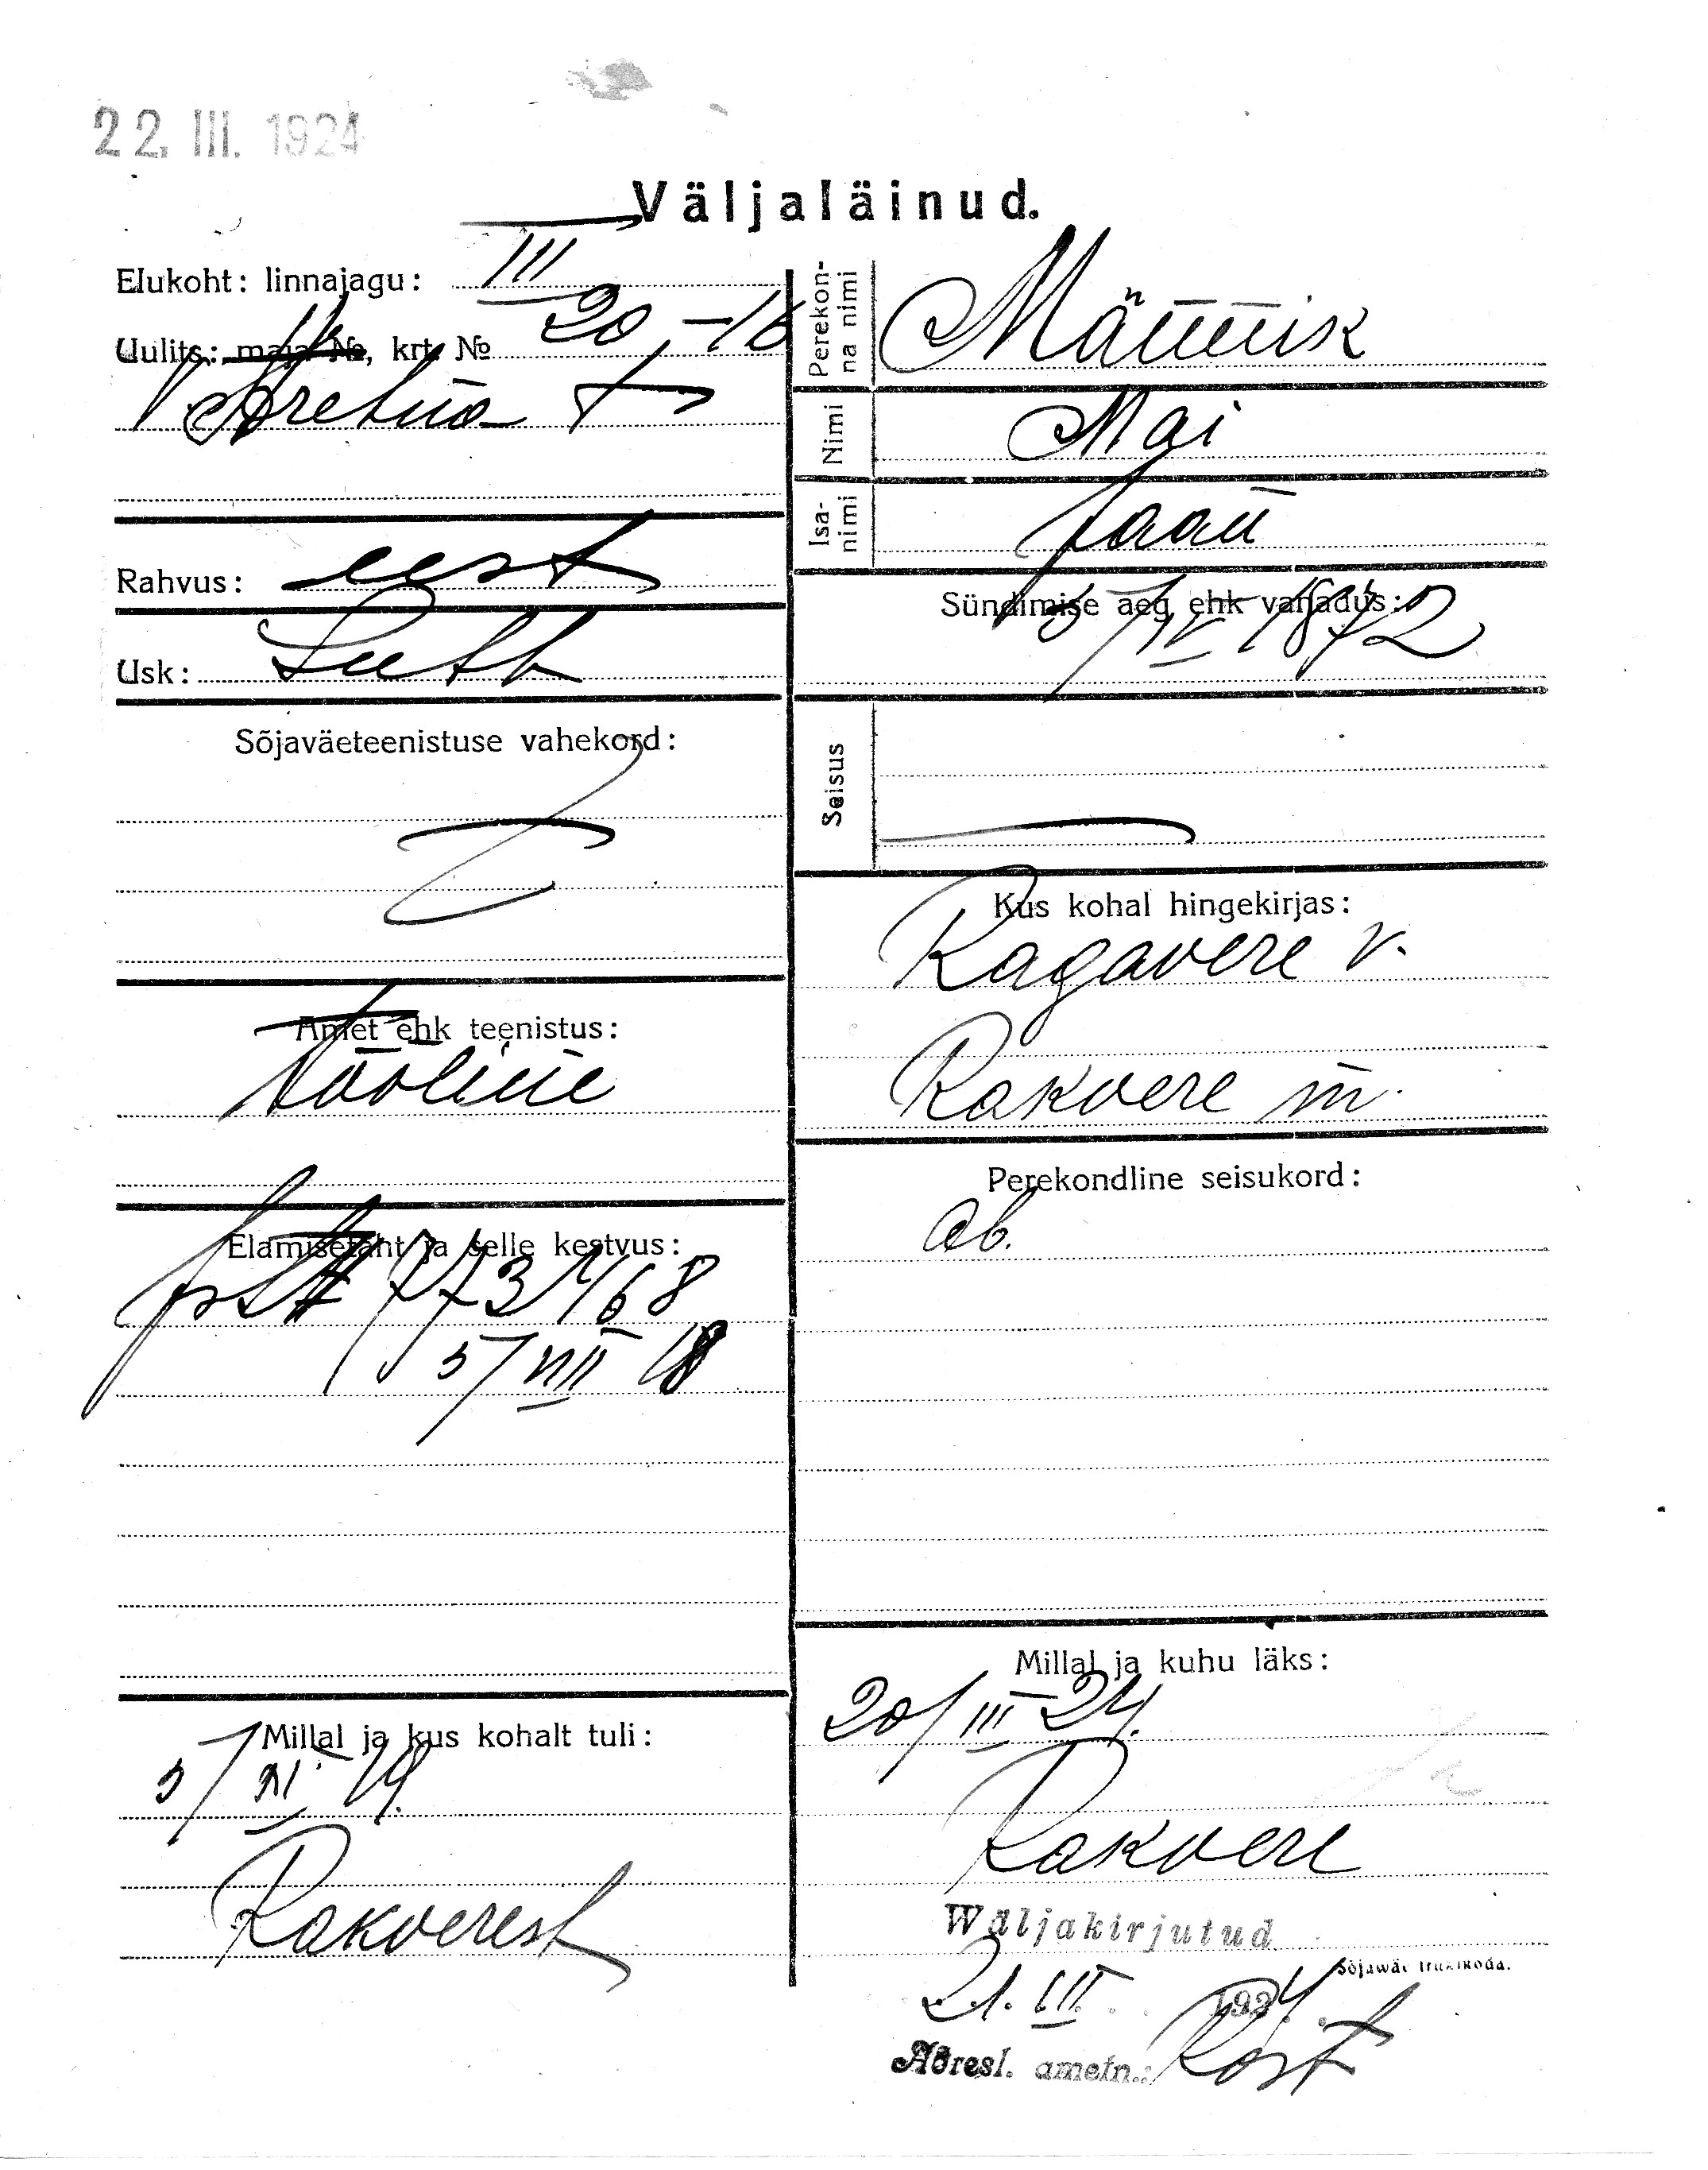 22. III. 1924
Väljaläinud.
Elukoht: linnajagu: III
Uulits: maja №, krt. № 20 – 16
Rahvus: eest
Usk: Luth
Sõjaväeteenistuse vahekord:
Amet ehk teenistus:
tööline
Elamisetäht ja selle kestvus:
773 168
5/VIII 18
Millal ja kus kohalt tuli:
5/XI 19.
Rakverest
Perekonna nimi Männik
Nimi Mai
Isanimi Jaan
Sündimise aeg ehk vanadus:
5/IV 1872
Seisus
Kus kohal hingekirjas:
Kagavere v.
Rakvere m.
Perekondline seisukord:
ab.
Millal ja kuhu läks:
20/III 24.
Rakvere
Wäljakirjutud
Sõjawäe trükikoda.
21. III. 1924.
Adresl. ametn.: Kost